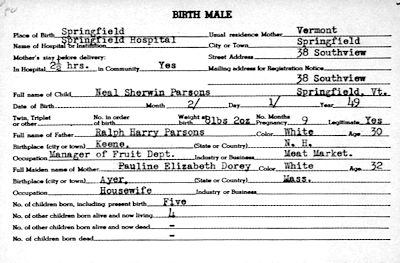 BIRTH MALE
Place of Birth Springfield Usual residence Mother Vermont
Name of Hospital or Institution Springfield Hospital City or Town Springfield
Mother's stay before delivery: Street Address 38 Southview
In Hospital 2½ hrs. in Community Yes Mailing address for Registration Notice
38 Southview
Full name of Child Neal Sherwin Parsons Springfield, Vt.
Date of Birth Month 2/ Day 1/ Year 49
Twin, Triplet No. in order Weight No. Months
or other of birth birth 9lbs 2oz Pregnancy 9 Legitimate Yes
Full name of Father Ralph Harry Parsons Color White Age 30
Birthplace (city or town) Keene, (State or Country) N. H.
Occupation Manager of Fruit Dept. Industry or Business Meat Market.
Full Maiden name of Mother Pauline Elizabeth Dorey Color White Age 32
Birthplace (city or town) Ayer, (State or Country) Mass.
Occupation Housewife Industry or Business
No. of children born, including present birth Five
No. of other children born alive and now living 4
No. of other children born alive and now dead -
No. of children born dead -